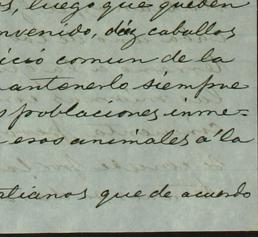 s, luego que queden
nvenido, diez caballos
icio comun de la
mantenerlo siempre
s poblaciones inme-
esos animales á la
tianos que de acuerdo